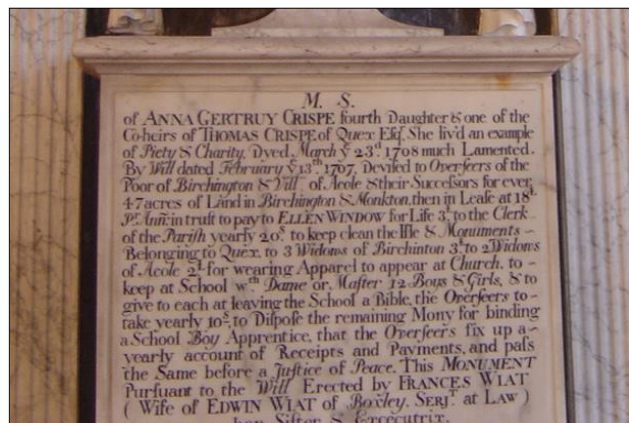 M. S.
of ANNA GERTRUY CRISPE fourth Daughter & one of the
Coheirs of THOMAS CRISPE of Quex Esq. She liv'd an example
of Piety & Charity, Dyed March yᵉ 23ᵈ 1708 much Lamented.
By Will dated February yᵉ 13ᵗʰ 1707, Devised to Overseers of the
Poor of Birchington & Vill of Acole & their Successors for ever
47 acres of Land in Birchington & Monkton, then in Lease at 18ᴸ
Pʳ Ann: in trust to pay to ELLEN WINDOW for Life 3ᴸ to the Clerk
of the Parish yearly 20ˢ to keep clean the Isle & Monuments
Belonging to Quex, to 3 Widows of Birchinton 3ᴸ to 2 Widows
of Acole 2ᴸ for wearing Apparel to appear at Church, to
keep at School wᵗʰ Dame or Master 12 Boys & Girls, & to
give to each at leaving the School a Bible, the Overseers to
take yearly 10ˢ, to Dispose the remaining Mony for binding
a School Boy Apprentice, that the Overseers fix up a
yearly account of Receipts and Payments, and pass
the Same before a Justice of Peace. This MONUMENT
Pursuant to the Will Erected by FRANCES WIAT
( Wife of EDWIN WIAT of Boxley, SERJᵀ at LAW )
her Sister & Executrix.